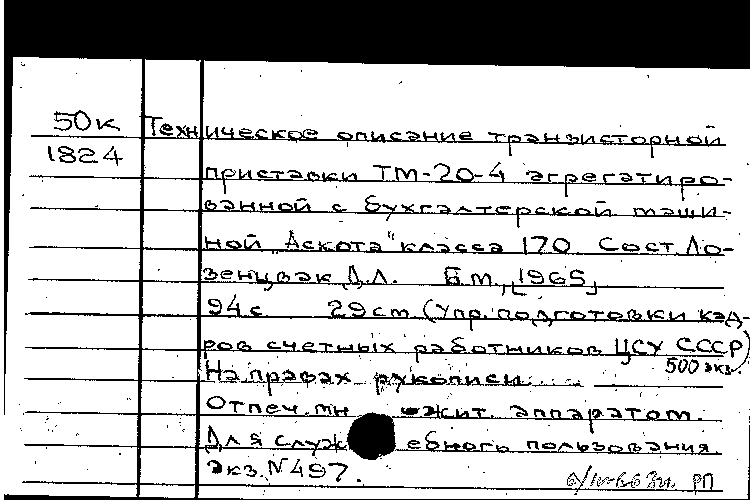 50к Техническое описание транзисторной
1824
приставки ТМ-20-4 агрегатиро-
ванной с бухгалтерской маши-
ной „Аскота" класса 170 Сост. Ло-
зенцвак Д.Л. Б.м., [1965]
94 с. 29 см (Упр. подготовки кад-
ров счетных работников ЦСУ СССР)
500 экз.
На правах рукописи.
Отпеч. аппаратом.
Для служебного пользования.
Экз. № 497.
РП